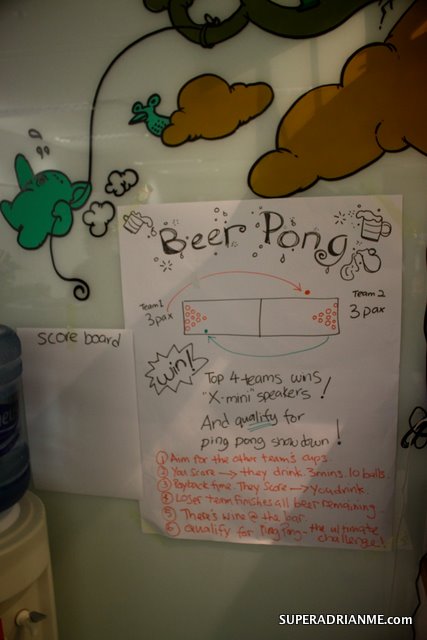 Beer Pong
Team 1
3 pax
Team 2
3 pax
score board
win!
Top 4 teams wins
"X-mini" speakers!
And qualify for
ping pong showdown!
① Aim for the other team's cups.
② You score → they drink. 3mins. 10 balls.
③ Payback time. They score → you drink.
④ Loser team finishes all beer remaining.
⑤ There's wine @ the bar.
⑥ Qualify for Ping Pong - the ultimate
challenge!
SUPERADRIANME.com